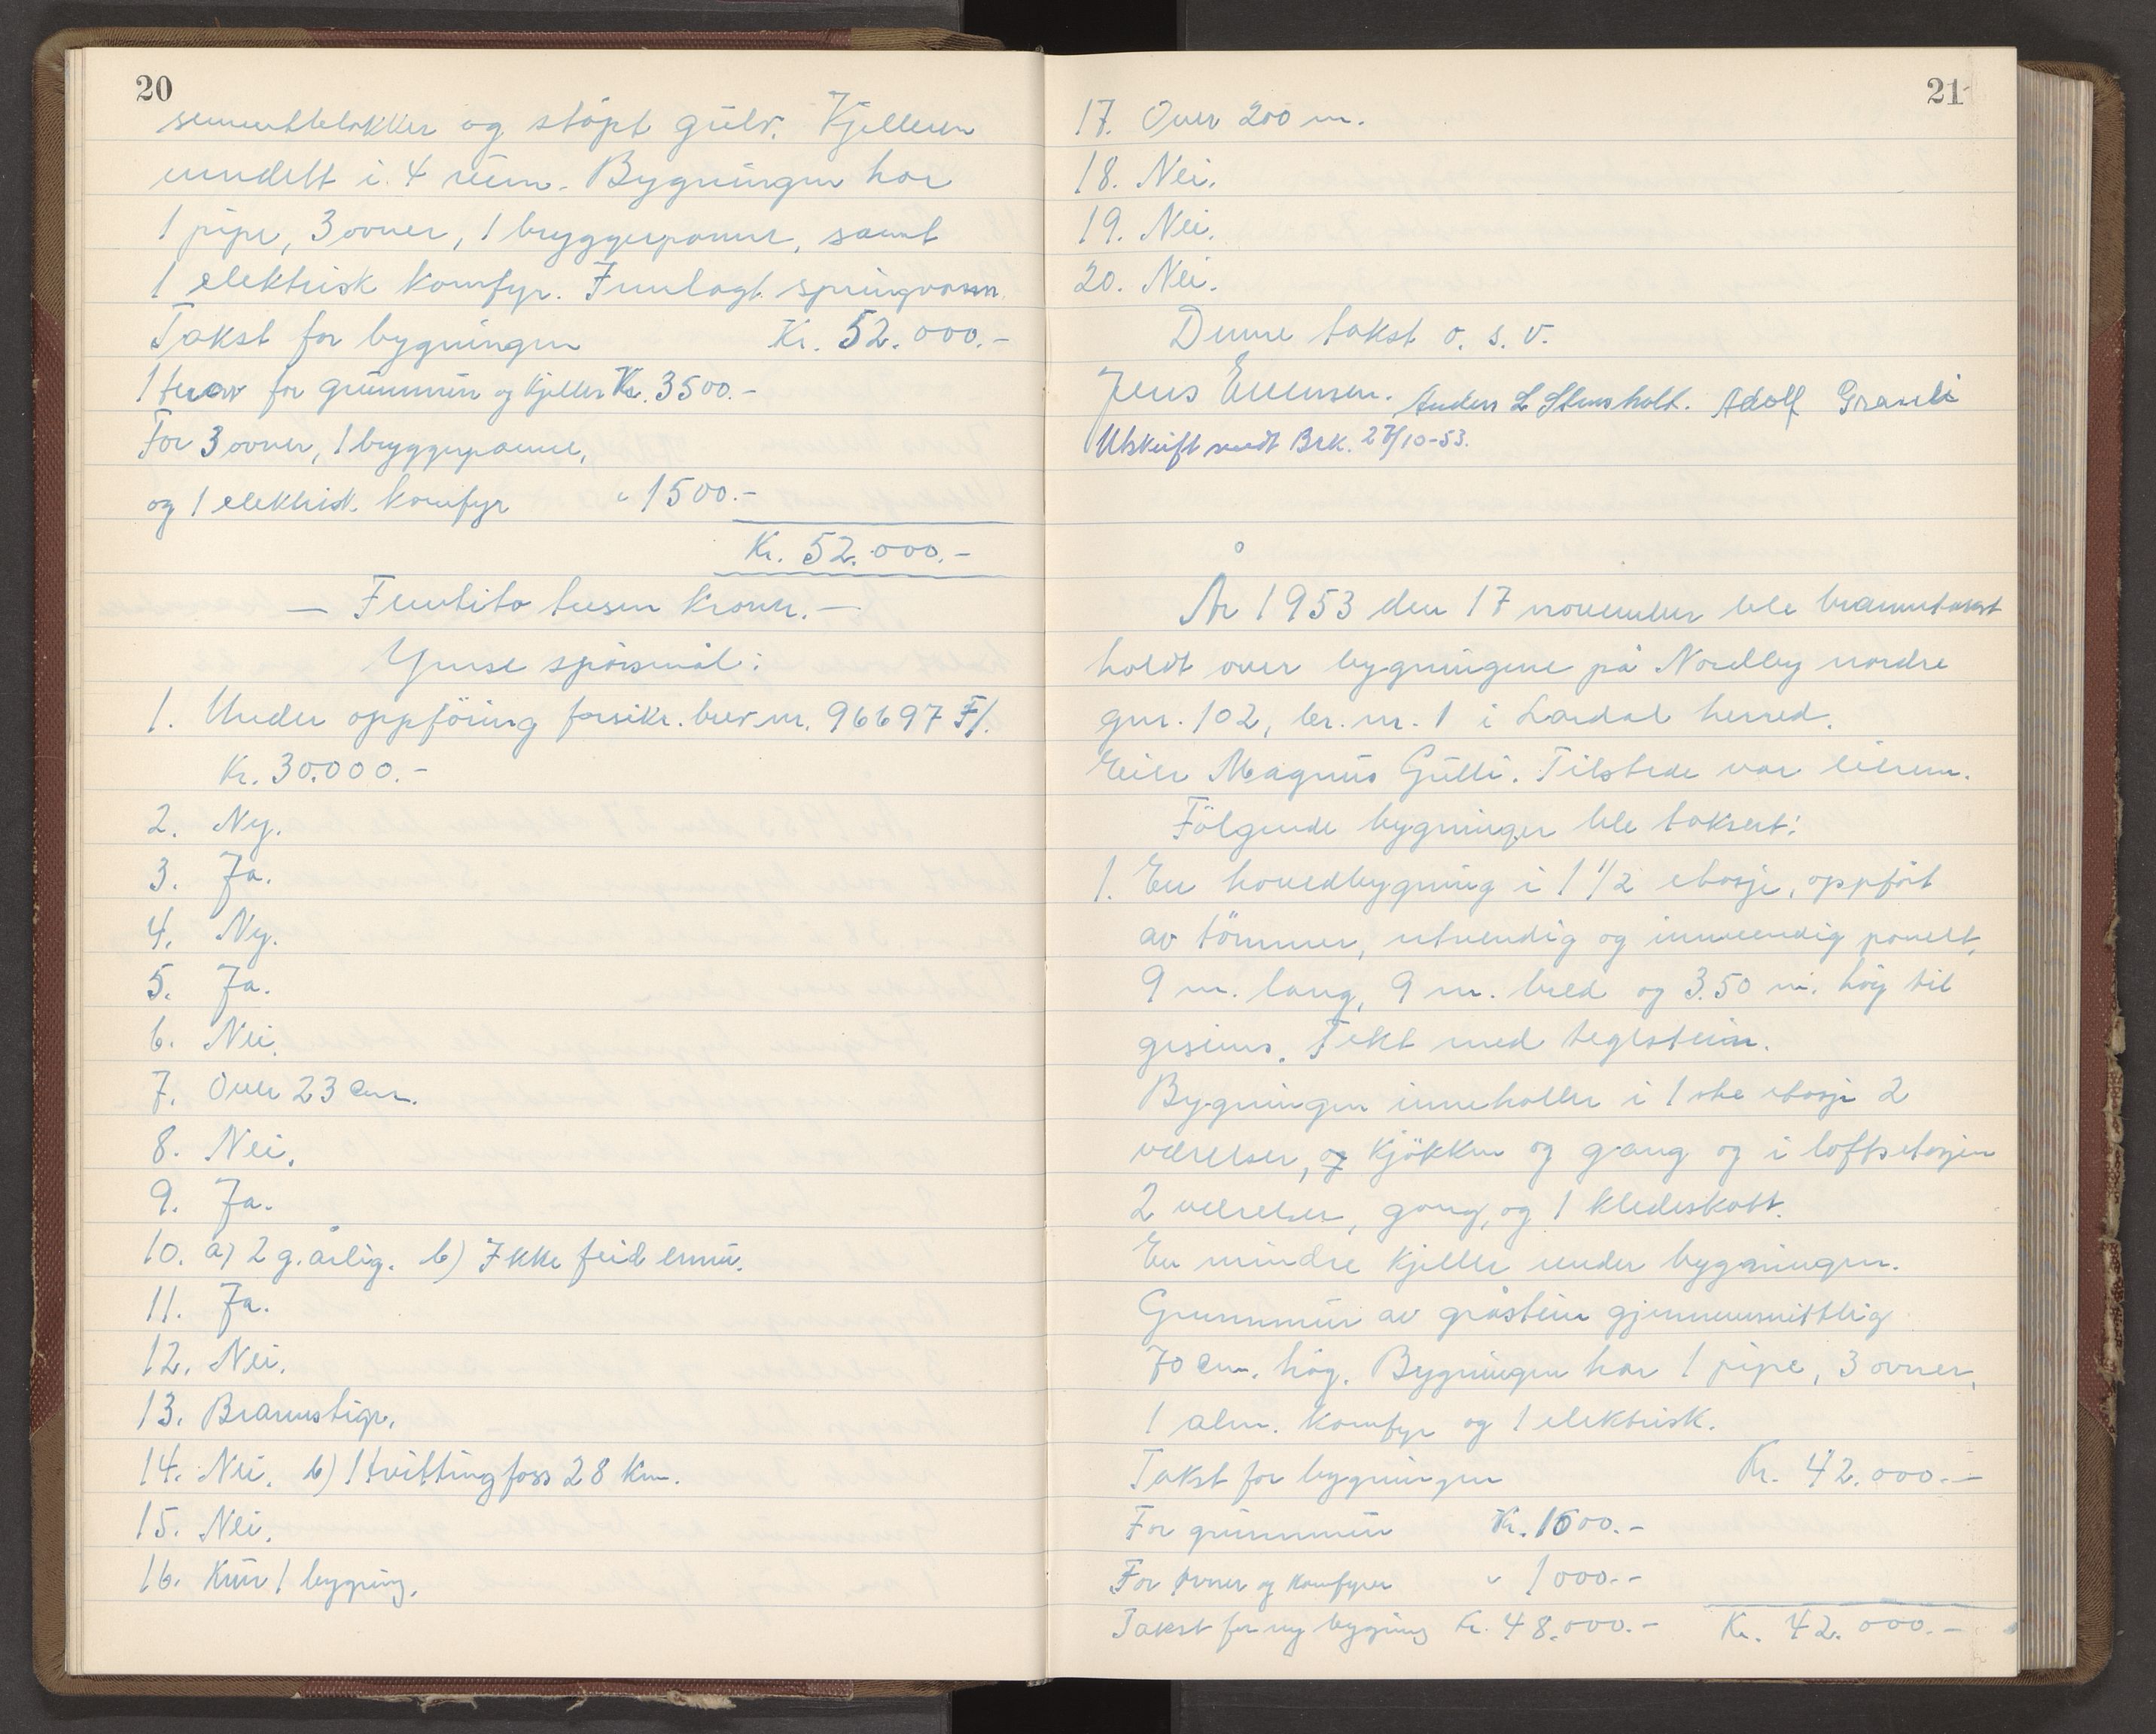 20
sementblokker og støpt gulv. Kjelleren
inndelt i 4 rum. Bygningen har
1 pipe, 3 ovner, 1 bryggepanne, samt
1 elektrisk komfyr. Innlagt springvann
Takst for bygningen Kr. 52.000.-
Herav for grunnmur og kjeller Kr. 3500.-
For 3 ovner, 1 bryggepanne,
og 1 elektrisk komfyr " 1500.-
Kr. 52.000.-
— Femtito tusen kroner. —
Ymse spörsmål:
1. Under oppföring forsikr. brev nr. 96697 F/.
Kr. 30.000.-
2. Ny.
3. Ja.
4. Ny.
5. Ja.
6. Nei.
7. Over 23 cm.
8. Nei.
9. Ja.
10. a) 2 g. årlig. b) Ikke feid ennu.
11. Ja.
12. Nei.
13. Brannstige.
14. Nei. b) Hvittingfoss 28 km.
15. Nei.
16. Kun 1 bygning.
21
17. Over 200 m.
18. Nei.
19. Nei.
20. Nei.
Denne takst o. s. v.
Jens Evensen. Anders L Stensholt. Adolf Granli
Utskrift sendt Brk. 27/10-53.
År 1953 den 17 november ble branntakst
holdt over bygningene på Nordby nordre
gnr. 102, br. nr. 1 i Lardal herred.
Eier Magnus Gulli. Tilstede var eieren.
Fölgende bygninger ble taksert:
1. En hovedbygning i 1 1/2 etasje, oppfört
av tömmer, utvendig og innvendig panelt,
9 m. lang, 9 m. bred og 3.50 m. höy til
gesims. Tekt med teglstein.
Bygningen inneholder i 1ste etasje 2
værelser, og kjökken og gang og i loftsetasjen
2 værelser, gang, og 1 kledeskott.
En mindre kjeller under bygningen.
Grunnmur av gråstein gjennemsnittlig
70 cm. höy. Bygningen har 1 pipe, 3 ovner,
1 alm. komfyr og 1 elektrisk.
Takst for bygningen Kr. 42.000.-
For grunnmur Kr. 1600.-
For ovner og komfyrer " 1000.-
Takst for ny bygning Kr. 48.000.- Kr. 42.000.-